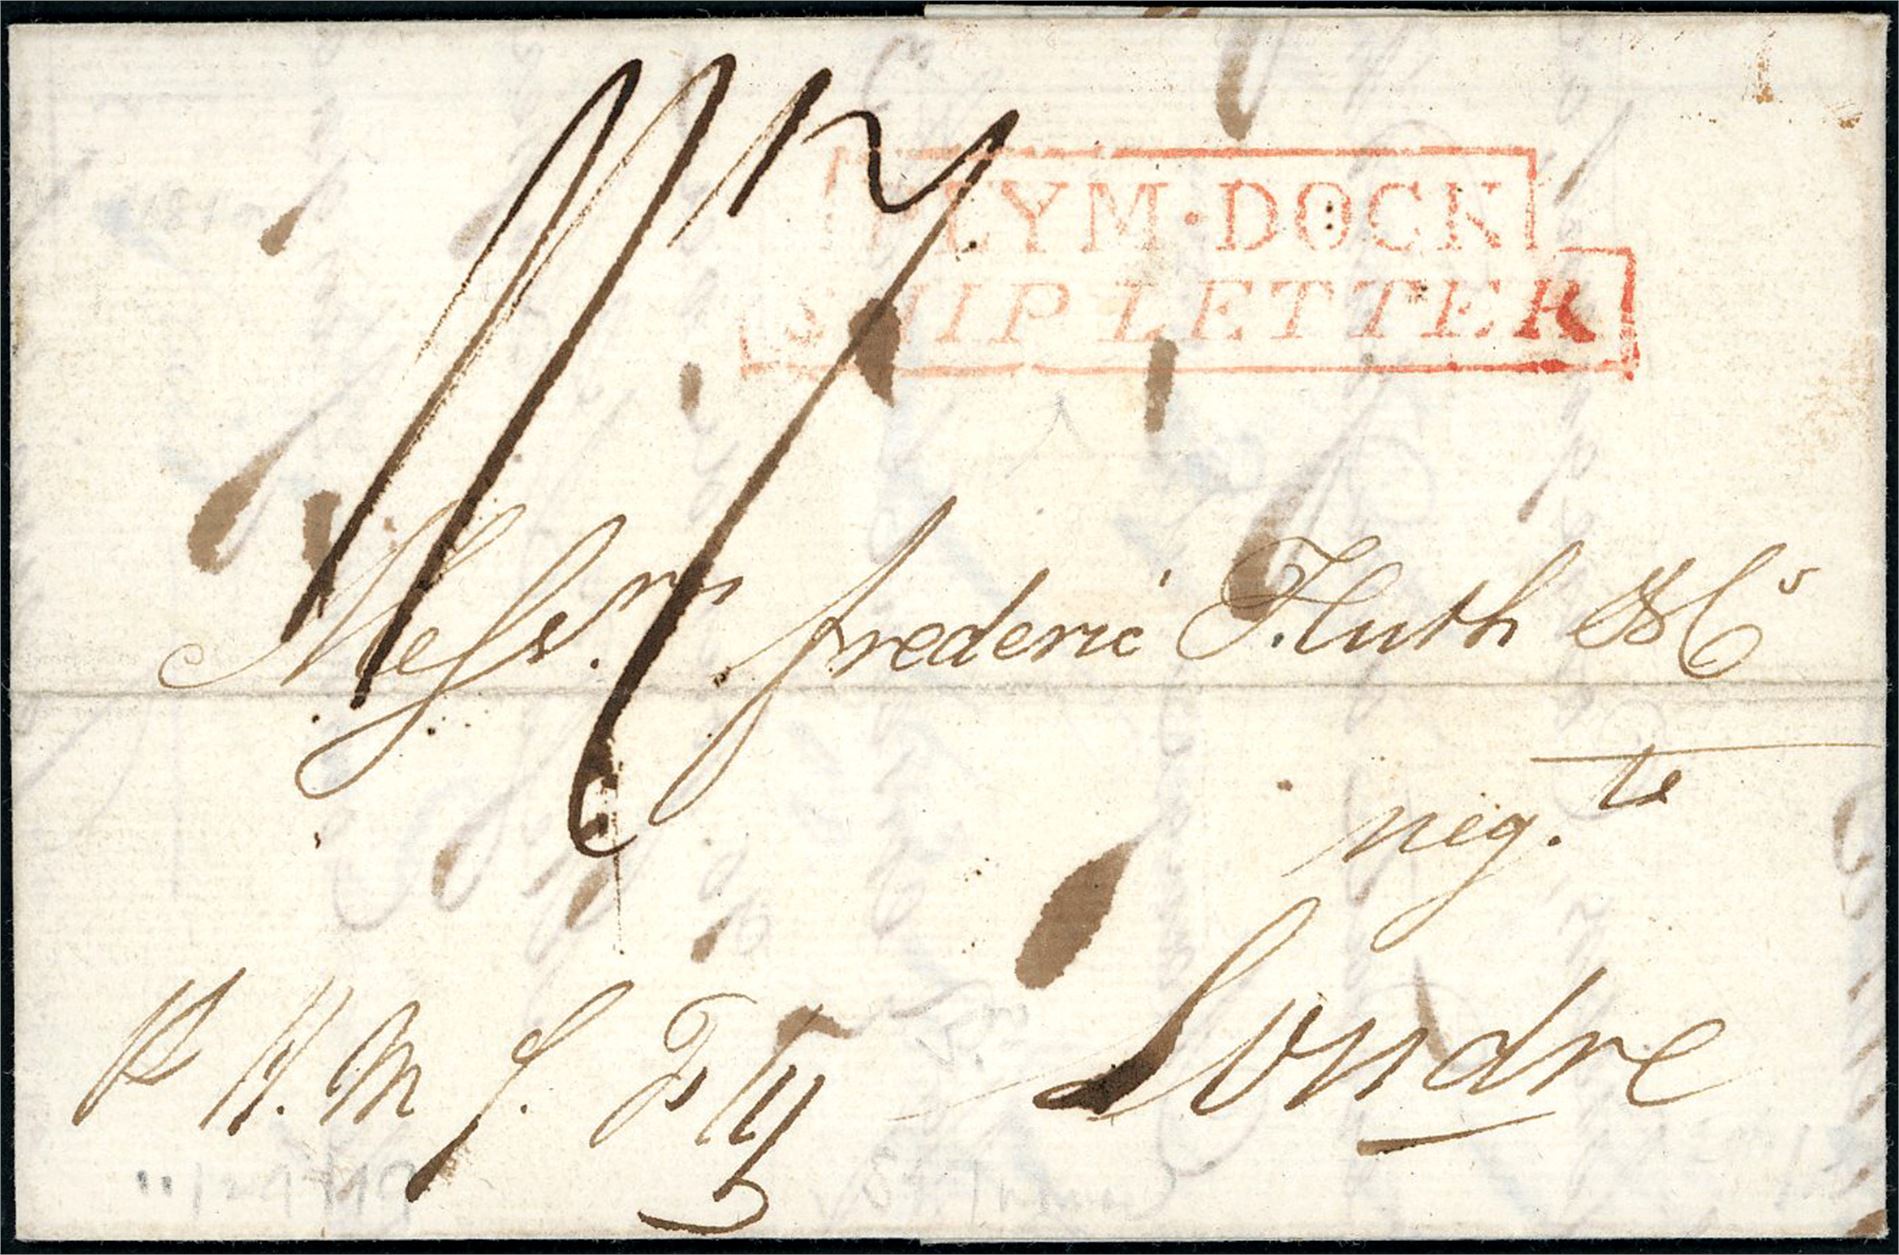 PLYM·DOCK
SHIP LETTER
Messrs. frederic Huth & Co
neg.te
Londre
p H.M.S. Fly